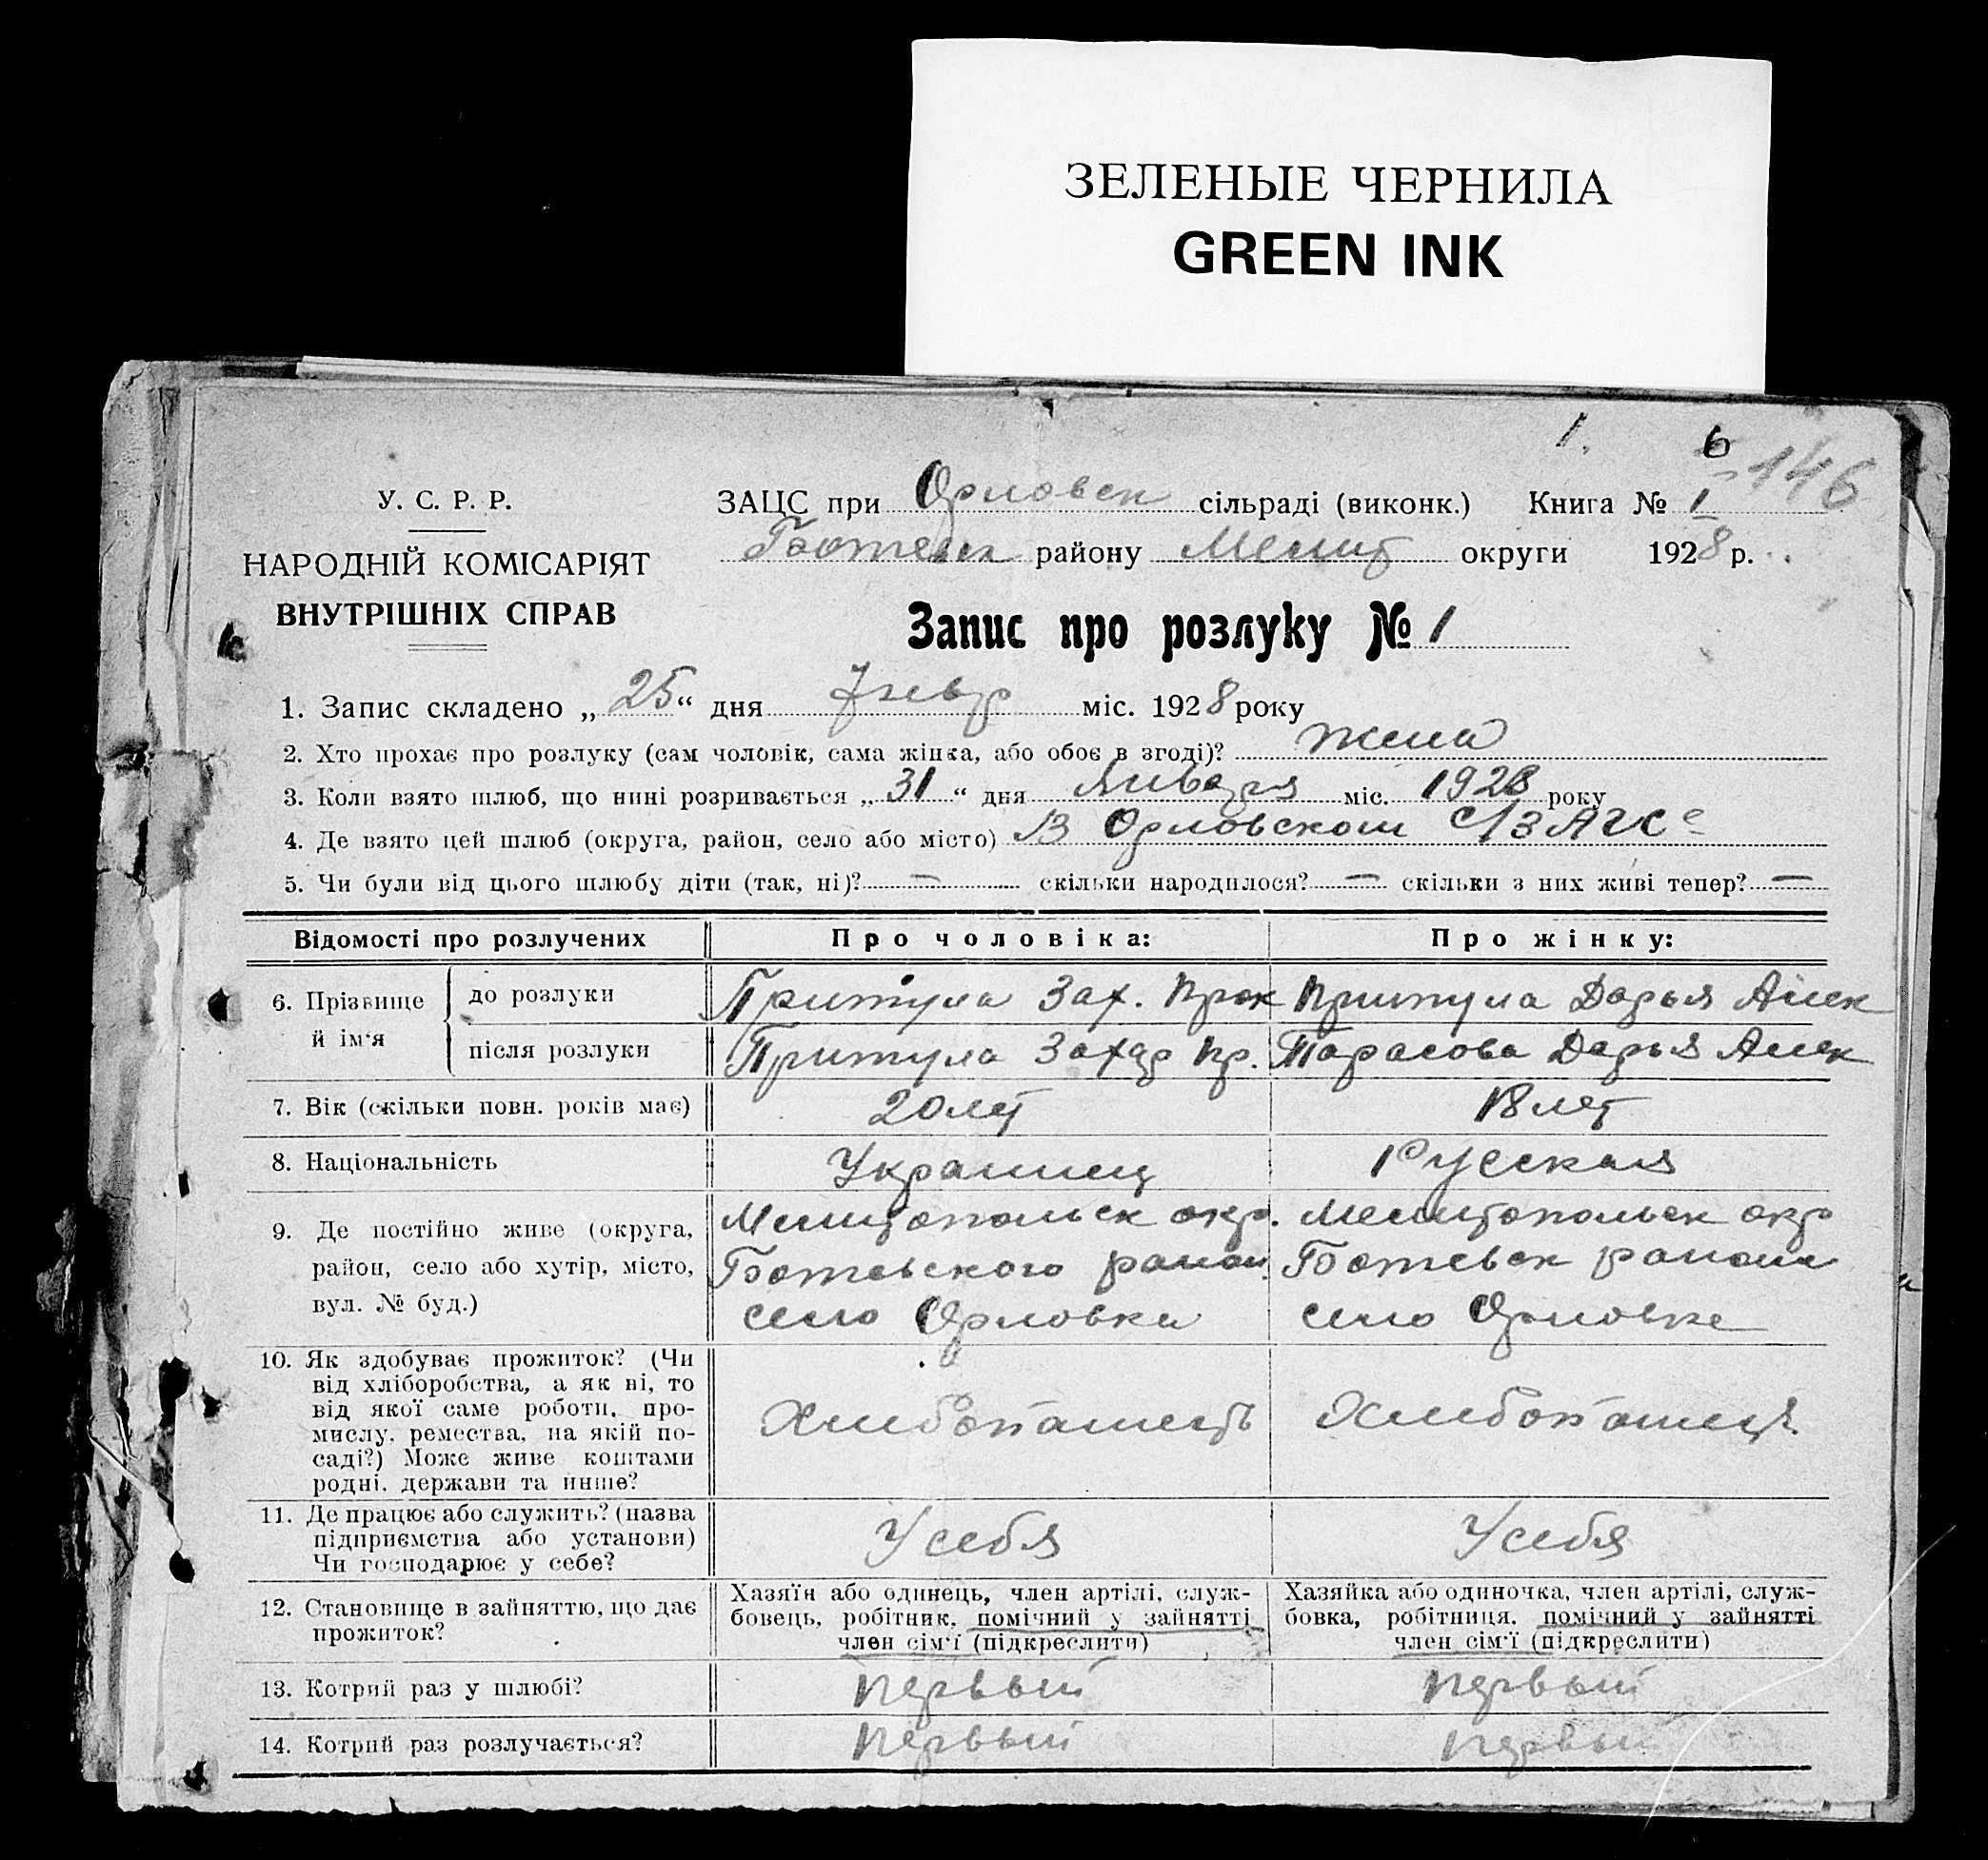 ЗЕЛЕНЫЕ ЧЕРНИЛА
GREEN INK
1. 6
146
У. С. Р. Р.
НАРОДНІЙ КОМІСАРІЯТ
ВНУТРІШНІХ СПРАВ
ЗАЦС при Орловск сільраді (виконк.) Книга № 1
Ботевск району Мелит округи 1928 р.
Запис про розлуку № 1
1. Запис складено „25“ дня міс. 1928 року
2. Хто прохає про розлуку (сам чоловік, сама жінка, або обоє в згоді)? жена
3. Коли взято шлюб, що нині розривається „31“ дня Января міс. 1928 року
4. Де взято цей шлюб (округа, район, село або місто) В Орловском с/ЗАГС
5. Чи були від цього шлюбу діти (так, ні)? — скільки народилося? — скільки з них живі тепер? —
Відомості про розлучених Про чоловіка: Про жінку:
6. Прізвище й ім'я до розлуки Притула Зах. Прок Притула Дарья Алек
після розлуки Притула Захар Пр. Тарасова Дарья Алек
7. Вік (скільки повн. років має) 20 лет 18 лет
8. Національність Украинец Русская
9. Де постійно живе (округа, Мелитопольск окр. Мелитопольск окр
район, село або хутір, місто, Ботевского район Ботевск района
вул. № буд.) село Орловка село Орловке
10. Як здобуває прожиток? (Чи
від хліборобства, а як ні, то
від якої саме роботи, про-
мислу, ремества, на якій по-
саді?) Може живе коштами
родні, держави та инше?
Хлибопашець Хлибопашець
11. Де працює або служить? (назва
підприємства або установи)
Чи господарює у себе?
У себя У себя
12. Становище в зайняттю, що дає
прожиток?
Хазяїн або одинець, член артілі, служ-
бовець, робітник, помічний у зайнятті
член сім'ї (підкреслити)
Хазяйка або одиночка, член артілі, служ-
бовка, робітниця, помічний у зайнятті
член сім'ї (підкреслити)
13. Котрий раз у шлюбі? первый первый
14. Котрий раз розлучається? первый первый